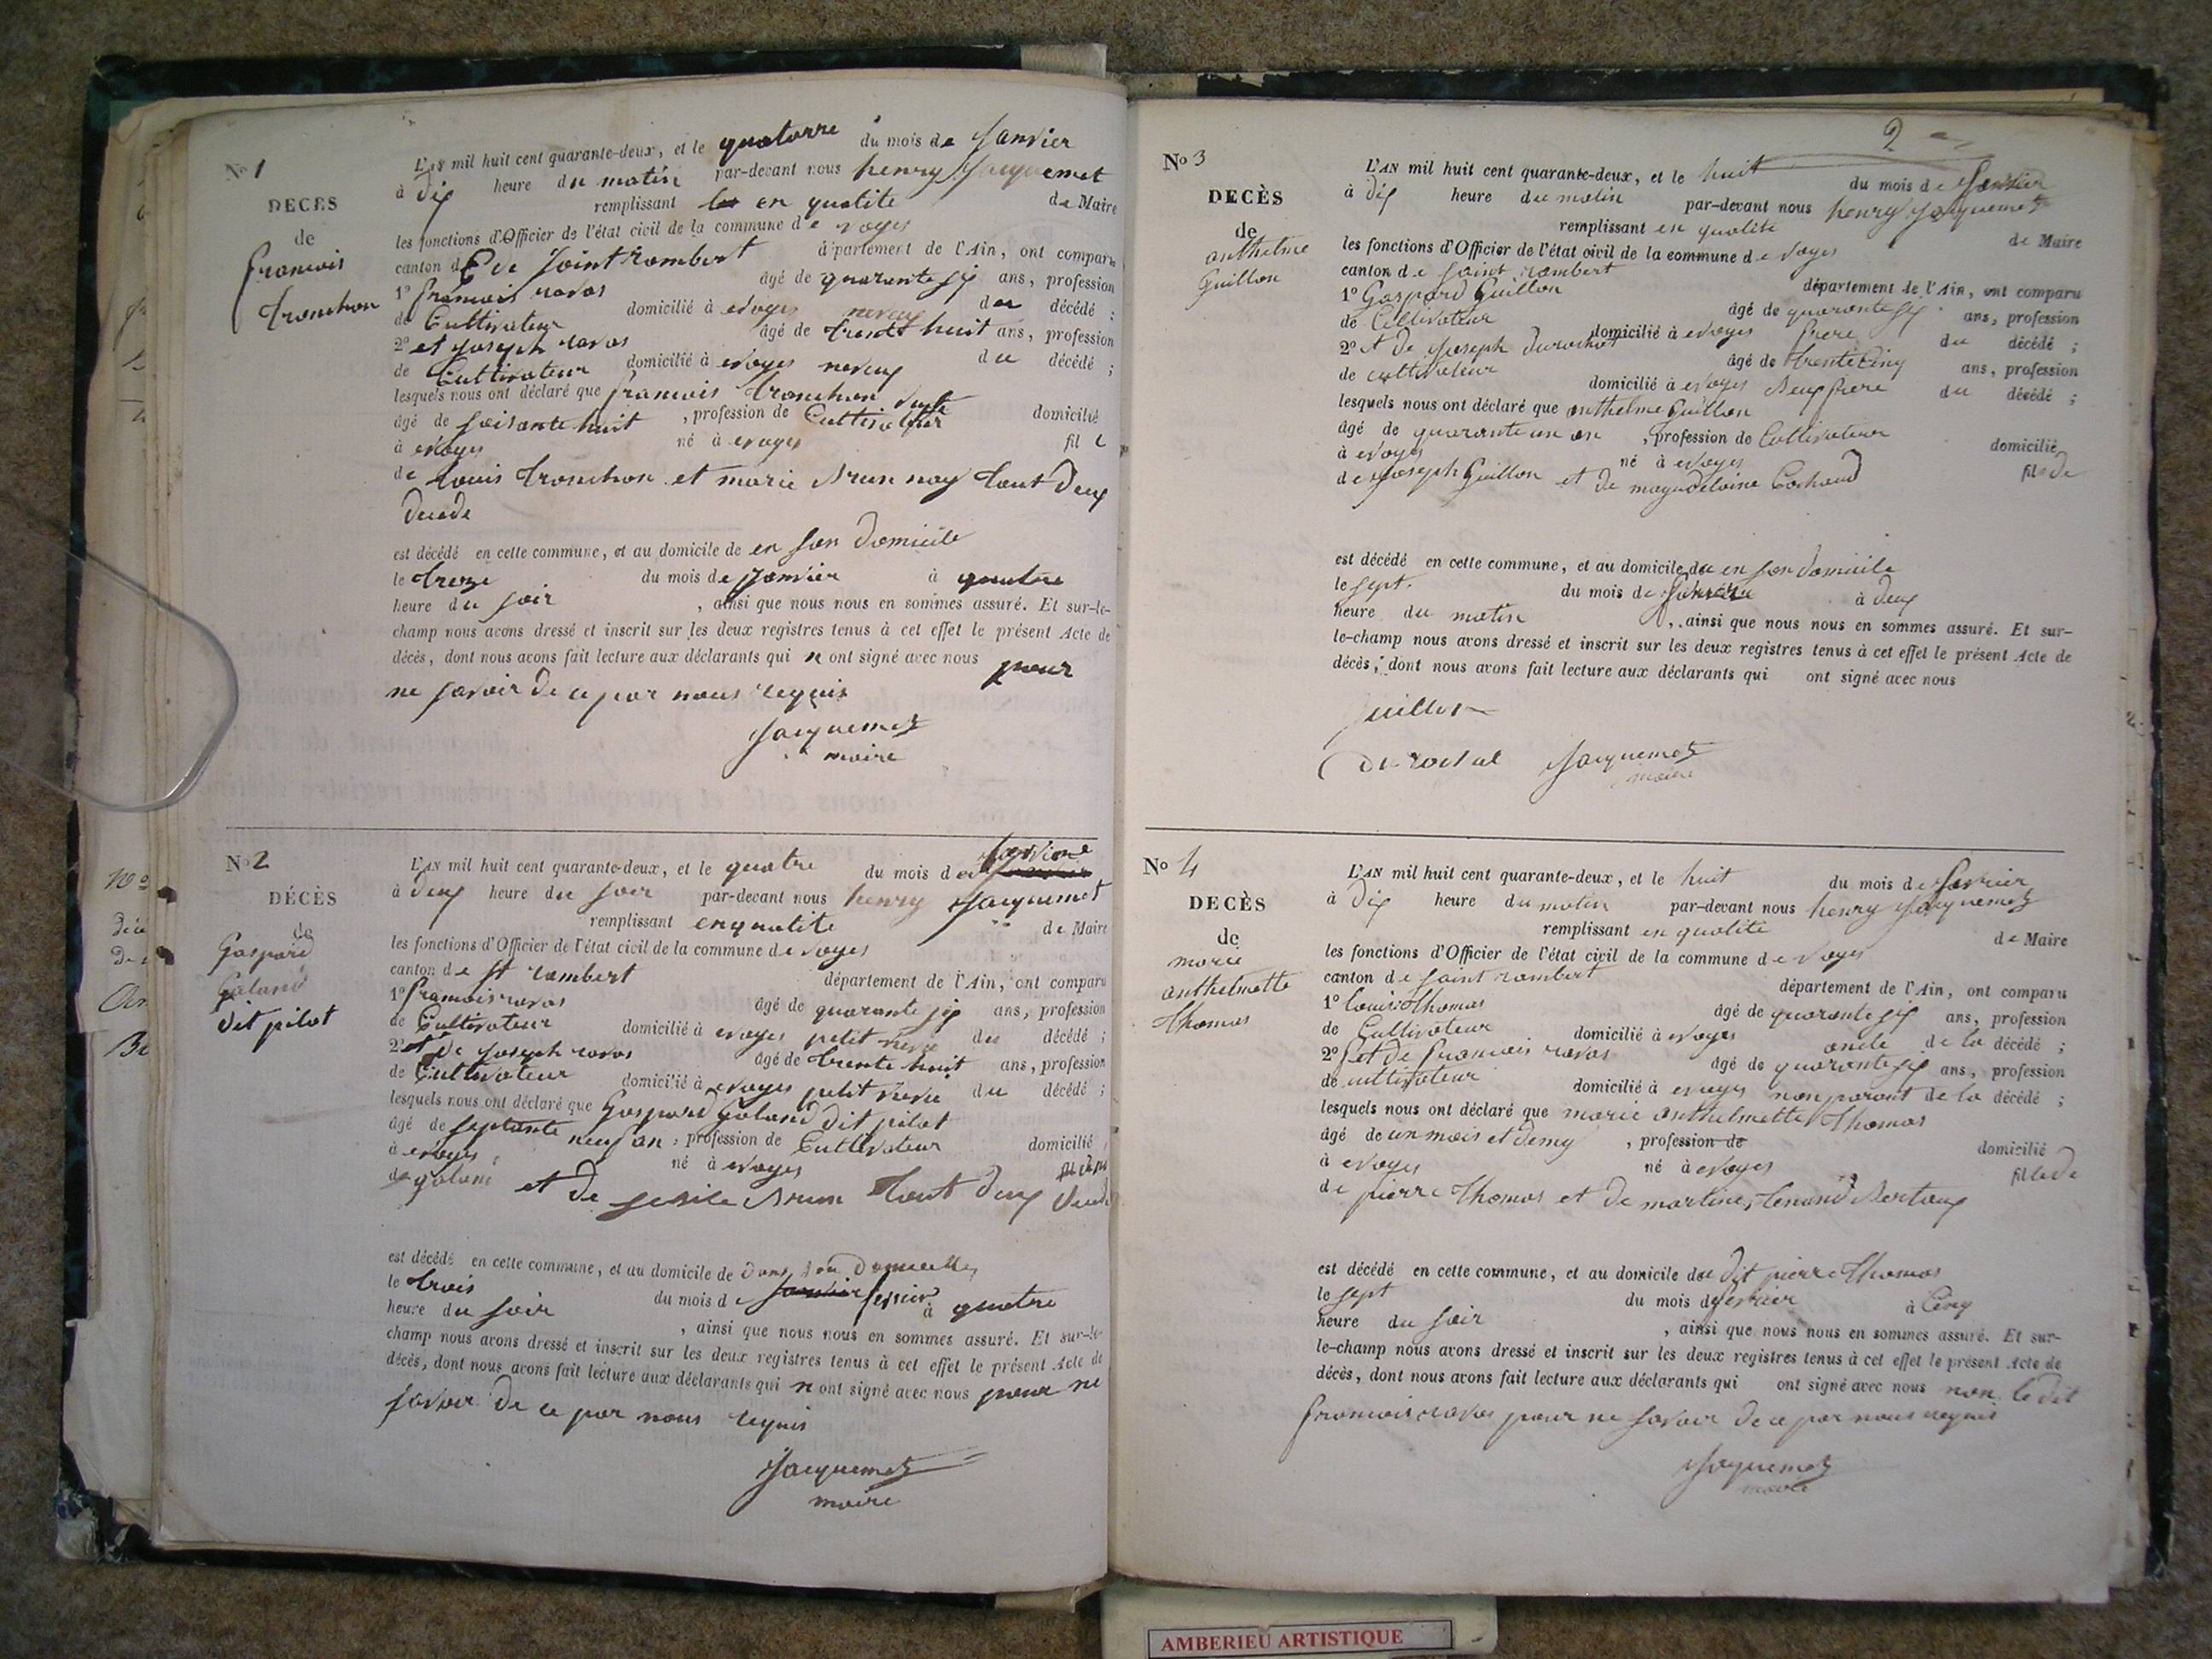 N° 1
DECES
de
francois
tronchon
L'AN mil huit cent quarante-deux, et le quatorre du mois de Janvier
à dix heure du matin par-devant nous henry Jacquemet
remplissant en qualité de Maire
les fonctions d'Officier de l'état civil de la commune d'evoges
canton de Saint rambert département de l'Ain, ont comparu
1° francois ravos âgé de quarante six ans, profession
de Cultivateur domicilié à evoges neveux du décédé ;
2° et joseph ravos âgé de trente huit ans, profession
de Cultivateur domicilié à evoges neveux du décédé ;
lesquels nous ont déclaré que francois tronchon
âgé de soisante huit , profession de Cultivateur domicilié
à evoges né à evoges fil
de Louis tronchon et marie Brun nay tout deux
decede
est décédé en cette commune, et au domicile de en son domicile
le treze du mois de janvier à quatre
heure du soir , ainsi que nous nous en sommes assuré. Et sur-le-
champ nous avons dressé et inscrit sur les deux registres tenus à cet effet le présent Acte de
décès, dont nous avons fait lecture aux déclarants qui n ont signé avec nous pour
ne savoir de ce par nous requis
Jacquemet
maire
N° 2
DÉCÈS
de
Gaspard
Galand
dit pilot
L'AN mil huit cent quarante-deux, et le quatre du mois de
à deux heure du soir par-devant nous henry Jacquemet
remplissant en qualité de Maire
les fonctions d'Officier de l'état civil de la commune d evoges
canton de St rambert département de l'Ain, ont comparu
1° francois ravos âgé de quarante six ans, profession
de Cultivateur domicilié à evoges petit neveu du décédé ;
2° et de joseph ravos âgé de trente huit ans, profession
de Cultivateur domicilié à evoges petit neveu du décédé ;
lesquels nous ont déclaré que Gaspard Galand dit pilot
âgé de septante neuf an , profession de Cultivateur domicilié
à evoges né à evoges
de galand et de Brun tout deux
est décédé en cette commune, et au domicile de dans son domicille
le trois du mois de fevrier à quatre
heure du soir , ainsi que nous nous en sommes assuré. Et sur-le-
champ nous avons dressé et inscrit sur les deux registres tenus à cet effet le présent Acte de
décès, dont nous avons fait lecture aux déclarants qui n ont signé avec nous pour ne
savoir de ce par nous requis
Jacquemet
maire
2
N° 3
DECÈS
de
anthelme
Guillon
L'AN mil huit cent quarante-deux, et le huit du mois de
à dix heure du matin par-devant nous henry Jacquemet
remplissant en qualité de Maire
les fonctions d'Officier de l'état civil de la commune d evoges
canton de saint rambert département de l'Ain, ont comparu
1° Gaspard Guillon âgé de quarante six ans, profession
de Cultivateur domicilié à evoges frere du décédé ;
2° et de joseph durochat âgé de trente cinq ans, profession
de cultivateur domicilié à evoges Beux frere du décédé ;
lesquels nous ont déclaré que anthelme Guillon
âgé de quarante un an , profession de Cultivateur domicilié
à evoges né à evoges fils de
de joseph Guillon et de magdeloine
est décédé en cette commune, et au domicile de en son domicile
le sept du mois de à deux
heure du matin , ainsi que nous nous en sommes assuré. Et sur-
le-champ nous avons dressé et inscrit sur les deux registres tenus à cet effet le présent Acte de
décès, dont nous avons fait lecture aux déclarants qui ont signé avec nous
Guillon
durochat Jacquemet
maire
N° 4
DECÈS
de
marie
anthelmette
thomas
L'AN mil huit cent quarante-deux, et le huit du mois de favrier
à dix heure du matin par-devant nous henry Jacquemet
remplissant en qualité de Maire
les fonctions d'Officier de l'état civil de la commune d evoges
canton de saint rambert département de l'Ain, ont comparu
1° louis thomas âgé de quarante six ans, profession
de Cultivateur domicilié à evoges oncle de la décédé ;
2° et de francois ravos âgé de quarante six ans, profession
de cultivateur domicilié à evoges non parant de la décédé ;
lesquels nous ont déclaré que marie anthelmette thomas
âgé de un mois et demy , profession de domicilié
à evoges né à evoges fille de
de pierre thomas et de martine
est décédé en cette commune, et au domicile du dit pierre thomas
le sept du mois de fevrier à cinq
heure du soir , ainsi que nous nous en sommes assuré. Et sur-
le-champ nous avons dressé et inscrit sur les deux registres tenus à cet effet le présent Acte de
décès, dont nous avons fait lecture aux déclarants qui ont signé avec nous non le dit
francois ravos pour ne savoir de ce par nous requis
Jacquemet
maire
AMBERIEU ARTISTIQUE